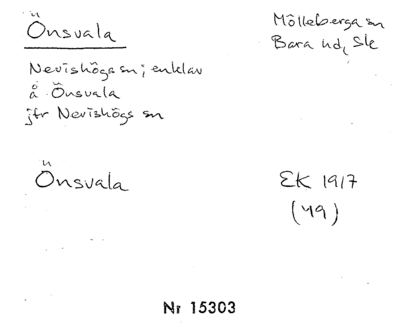 Önsvala
Mölleberga sn
Bara hd, Ske
Nevishöga sn; enklav
å Önsvala
jfr Nevishögs sn
Önsvala
EK 1917
(49)
Nr 15303